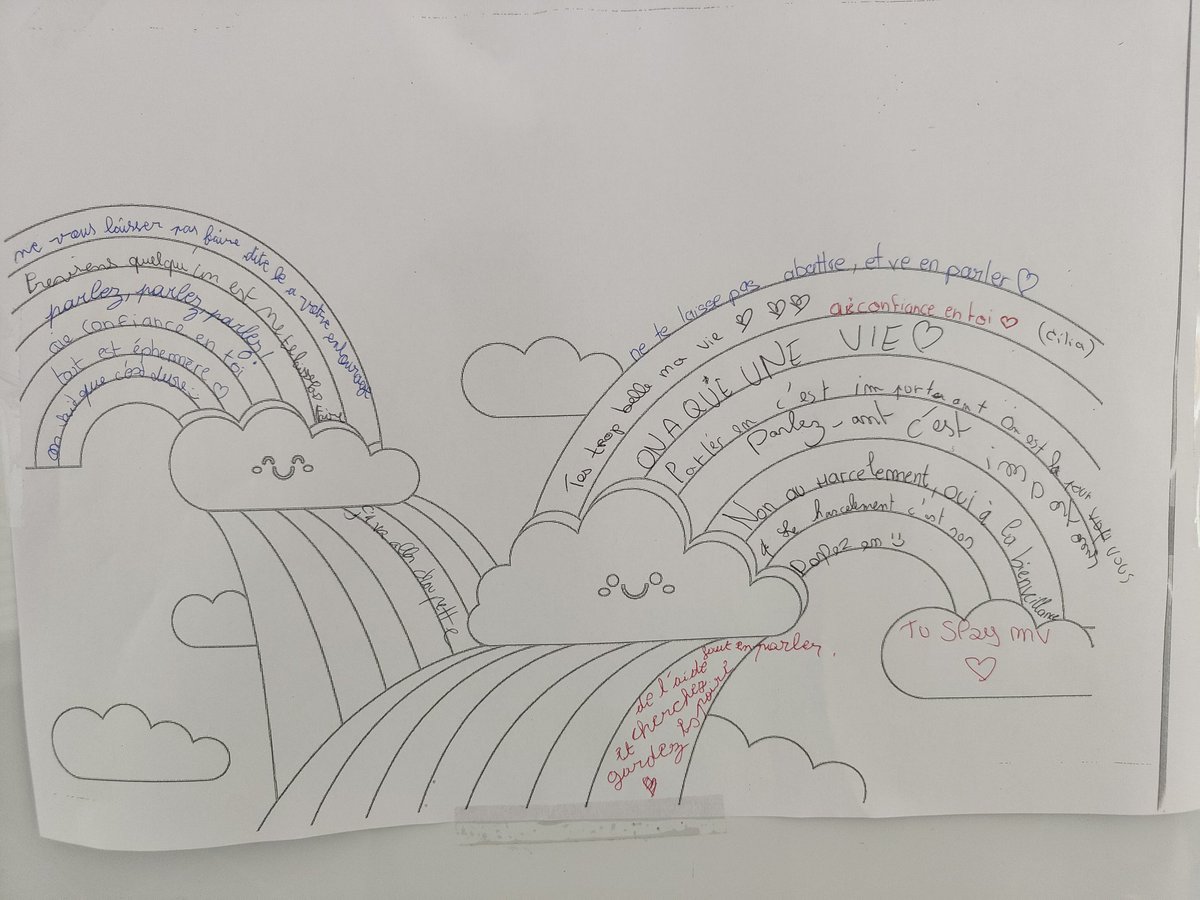 ne vous laisser pas faire dite le a votre entourage
quelqu'un est
parlez, parlez, parlez!
aie confiance en toi
tout est éphemere ♡
on sait que c'est dure
ça va aller choupette
ne te laisse pas abattre, et ve en parler ♡
T'es trop belle ma vie ♡ ♡ ♡ aie confiance en toi ♡ (cilia)
ON A QU'UNE VIE ♡
Parler en c'est important On est la pour vous
Parlez-ant c'est important
Non au Harcelement, oui à la bienveillance
le harcelement c'est non
Parlez en
Tu SPay mv
♡
faut en parler.
de l'aide
et cherchez
gardez espoire
♡